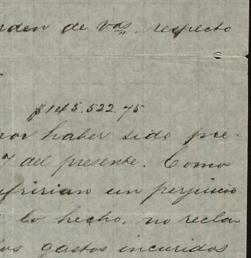 rden de Vds. respecto
$145.522.75
por haber sido pre-
r del presente. Como
ufririan un perjuicio
lo hecho, no recla
los gastos incuridos